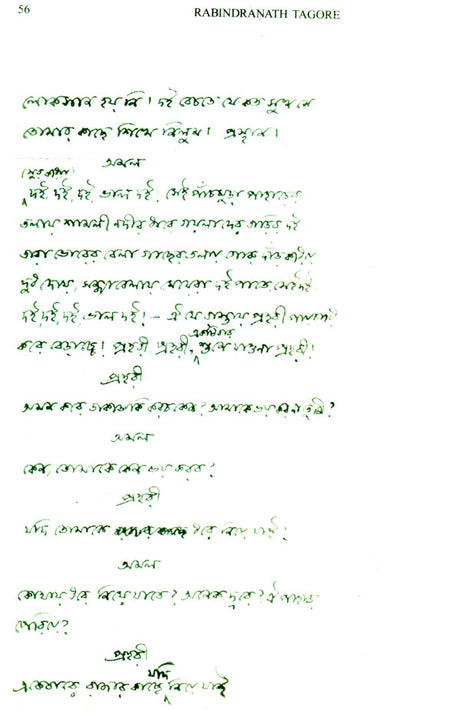 56
RABINDRANATH TAGORE
লোকসান হয় নি। দই বেচতে যে কত সুখ সে
তোমার কাছে শিখে নিলুম। প্রস্থান।
অমল
(সুর করিয়া)
দই, দই, দই, ভাল দই! সেই পাঁচমুড়া পাহাড়ের
তলায় শামলী নদীর ধারে গয়লাদের বাড়ির দই
তারা ভোরের বেলা গাছের তলায় গোরু দাঁড় করিয়ে
দুধ দোয়, সন্ধ্যাবেলায় মেয়েরা দই পাতে সেই দই
দই, দই, দই, ভাল দই! — ঐ যে রাস্তায় প্রহরী পায়চারি
করে বেড়াচ্চে! প্রহরী, প্রহরী, একটিবার শুনে যাওনা প্রহরী!
প্রহরী
অমন করে ডাকাডাকি করচ কেন? আমাকে ভয় কর না তুমি?
অমল
কেন, তোমাকে কেন ভয় করব?
প্রহরী
যদি তোমাকে ধরে নিয়ে যাই?
অমল
কোথায় ধরে নিয়ে যাবে? অনেক দূরে? ঐ পাহাড়
পেরিয়ে?
প্রহরী
একেবারে রাজার কাছে যদি নিয়ে যাই